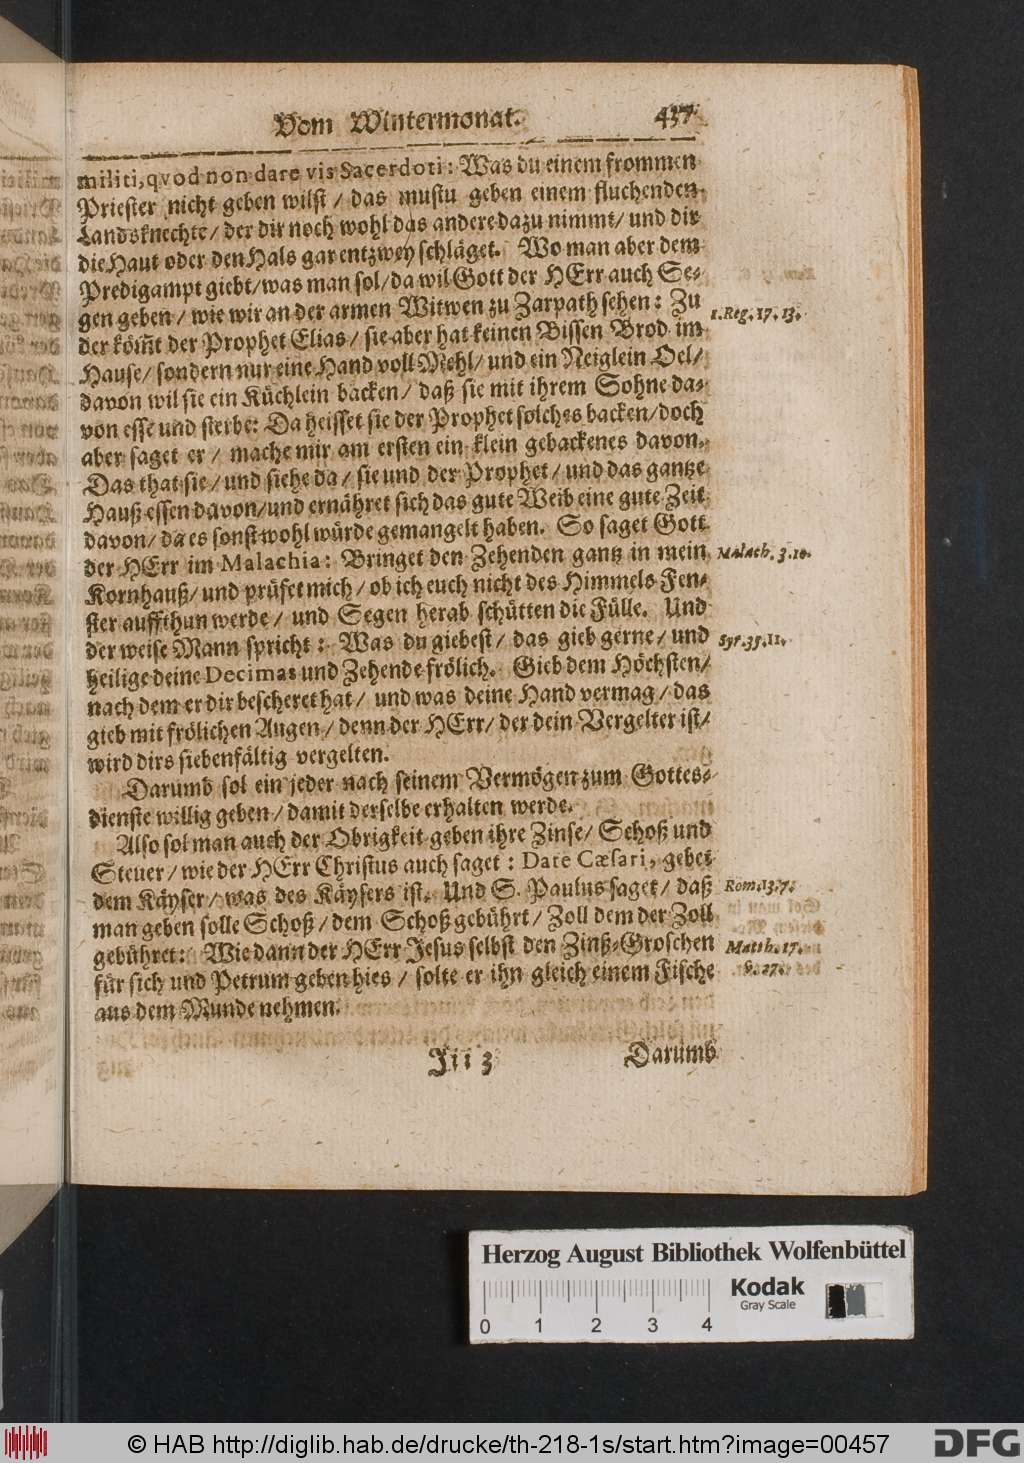 Vom Wintermonat. 437
militi, qvod non dare vis Sacerdoti: Was du einem frommen
Priester nicht geben wilst / das mustu geben einem fluchenden
Landsknechte / der dir noch wohl das andere dazu nimmt / und dir
die Haut oder den Hals gar entzwey schläget. Wo man aber dem
Predigampt giebt / was man sol / da wil Gott der HErr auch Se-
gen geben / wie wir an der armen Witwen zu Zarpath sehen: Zu
1. Reg. 17. 13.
der köm̃t der Prophet Elias / sie aber hat keinen Bissen Brod im
Hause / sondern nur eine Hand voll Mehl / und ein Neiglein Oel /
davon wil sie ein Küchlein backen / daß sie mit ihrem Sohne da-
von esse und sterbe: Da heisset sie der Prophet solches backen / doch
aber saget er / mache mir am ersten ein klein gebackenes davon.
Das that sie / und siehe da / sie und der Prophet / und das gantze
Hauß essen davon / und ernähret sich das gute Weib eine gute Zeit
davon / da es sonst wohl würde gemangelt haben. So saget Gott
der HErr im Malachia: Bringet den Zehenden gantz in mein
Malach. 3. 10.
Kornhauß / und prüfet mich / ob ich euch nicht des Himmels Fen-
ster auffthun werde / und Segen herab schütten die Fülle. Und
der weise Mann spricht: Was du giebest / das gieb gerne / und
Syr. 35. 11.
heilige deine Decimas und Zehende frölich. Gieb dem Höchsten /
nach dem er dir bescheret hat / und was deine Hand vermag / das
gieb mit frölichen Augen / denn der HErr / der dein Vergelter ist /
wird dirs siebenfältig vergelten.
Darumb sol ein jeder nach seinem Vermögen zum Gottes-
dienste willig geben / damit derselbe erhalten werde.
Also sol man auch der Obrigkeit geben ihre Zinse / Schoß und
Steuer / wie der HErr Christus auch saget: Date Cæsari, gebet
dem Käyser / was des Käysers ist. Und S. Paulus saget / daß
Rom. 13. 7.
man geben solle Schoß / dem Schoß gebührt / Zoll dem der Zoll
gebühret: Wie dann der HErr Jesus selbst den Zinß-Groschen
Matth. 17.
für sich und Petrum geben hies / solte er ihn gleich einem Fische
aus dem Munde nehmen.
Jii 3 Darumb
Herzog August Bibliothek Wolfenbüttel
Kodak
Gray Scale
0 1 2 3 4
© HAB http://diglib.hab.de/drucke/th-218-1s/start.htm?image=00457
DFG